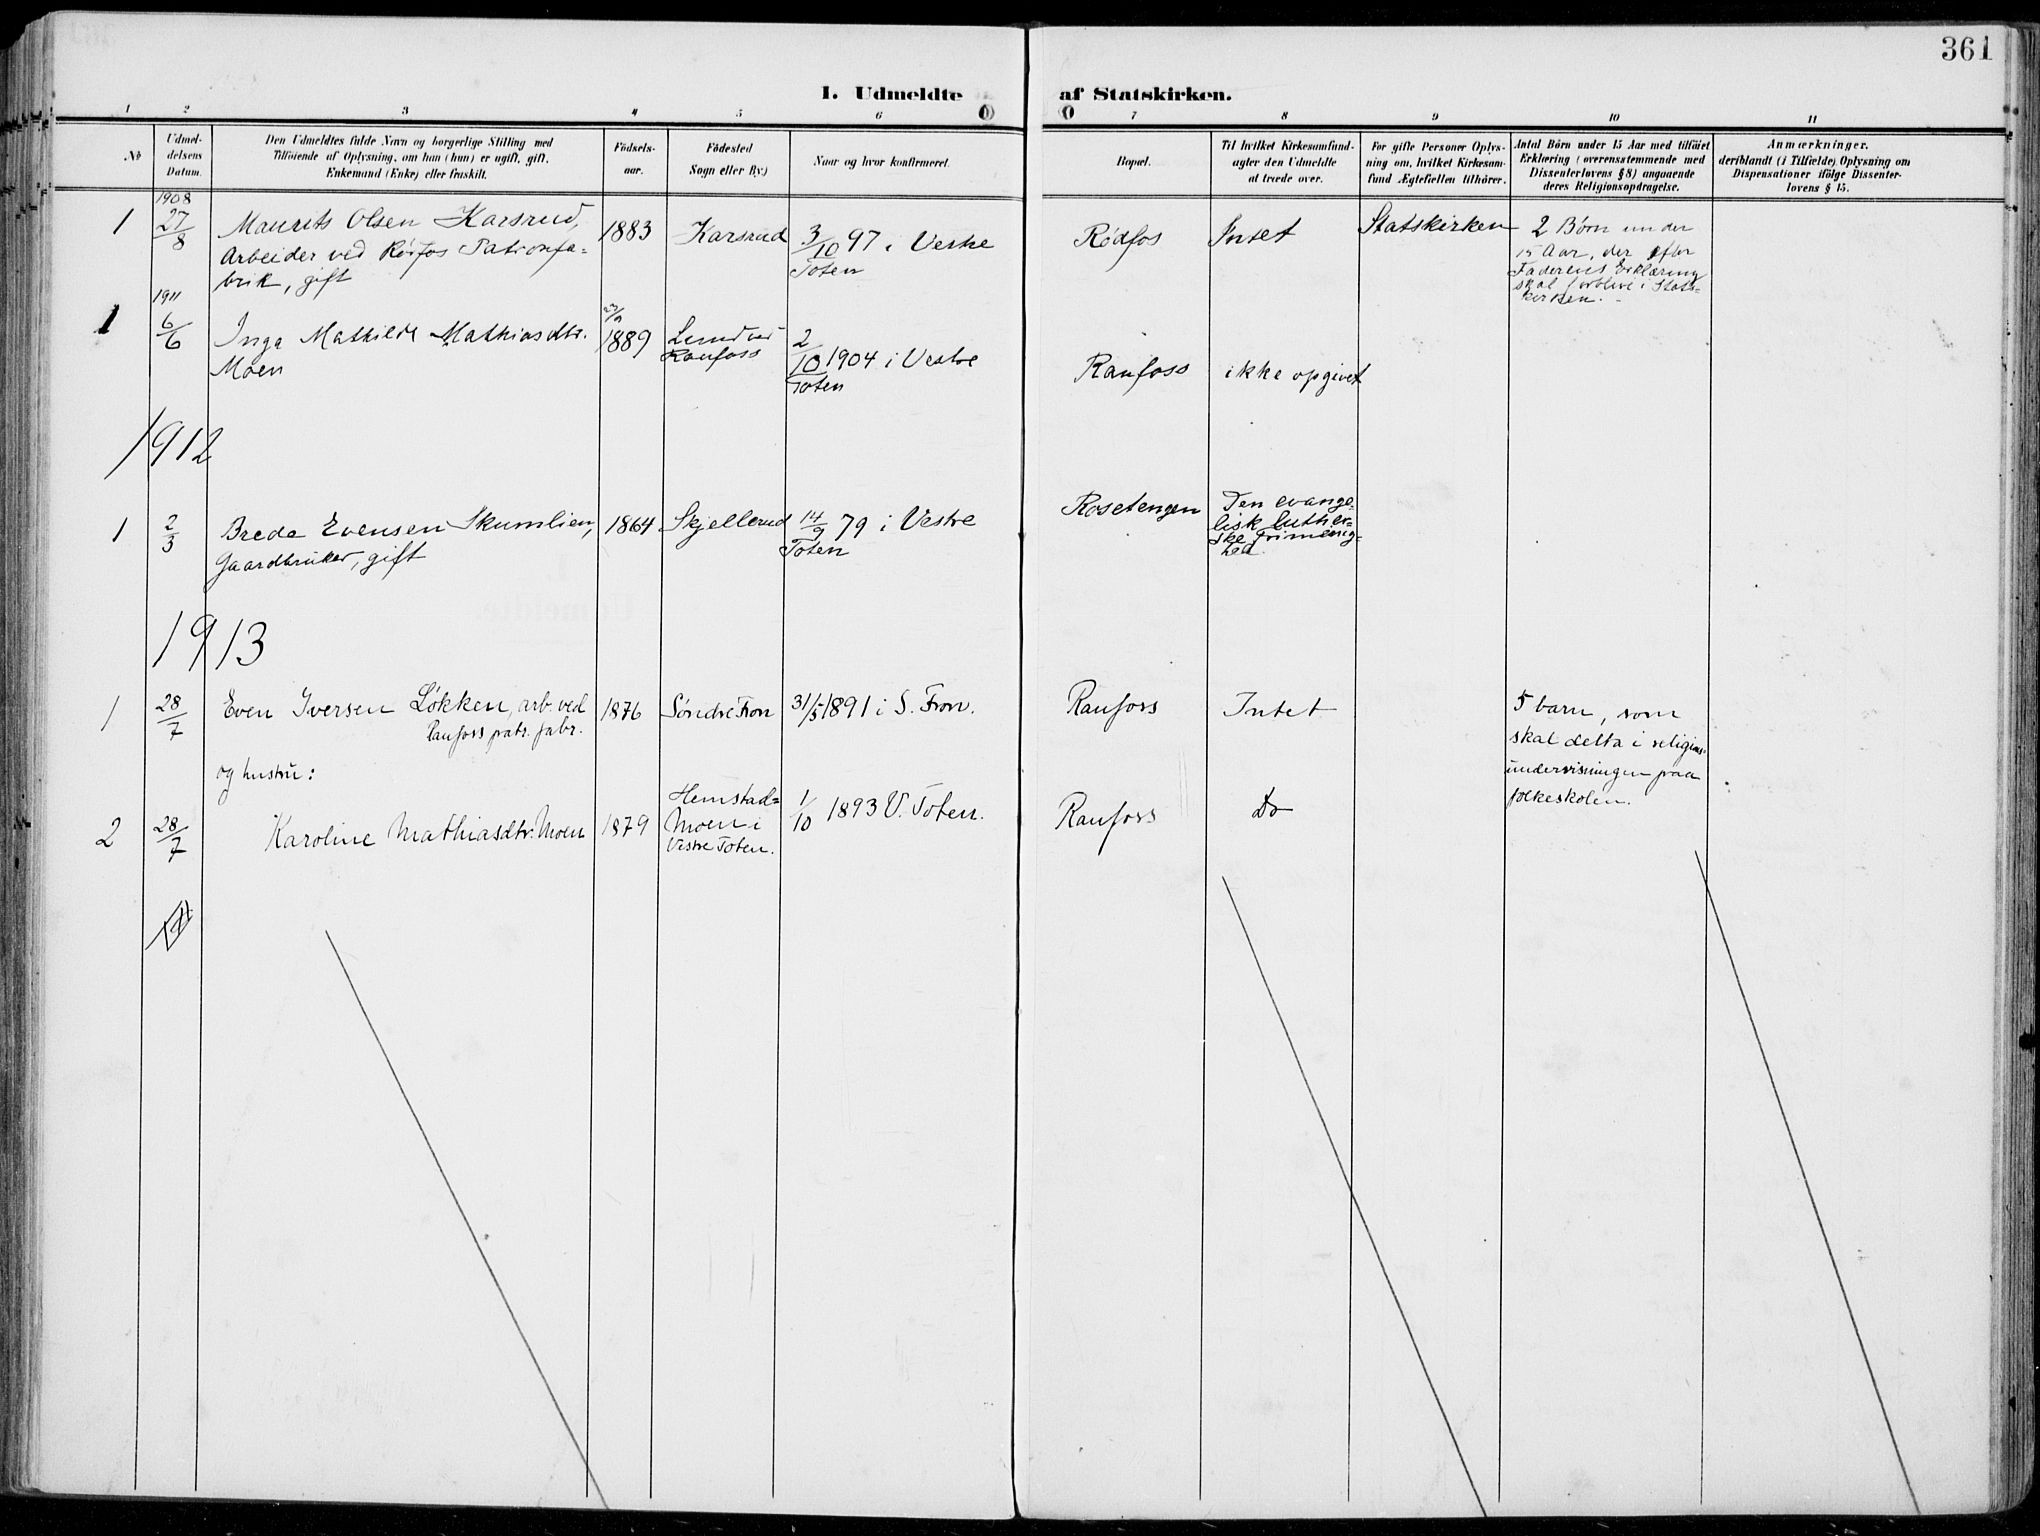 361
1. Udmeldte af Statskirken.
1 2 3 4 5 6 7 8 9 10 11
No
Udmel-
delsens
Datum.
Den Udmeldtes fulde Navn og borgerlige Stilling med
Tilföiende af Oplysning, om han (hun) er ugift, gift,
Enkemand (Enke) eller fraskilt.
Födsels-
aar.
Födested
Sogn eller By.)
Naar og hvor konfirmeret.
Bopæl.
Til hvilket Kirkesamfund-
agter den Udmeldte
at træde over.
For gifte Personer Oplys-
ning om, hvilket Kirkesam-
fund Ægtefællen tilhörer.
Antal Börn under 15 Aar med tilföiet
Erklæring (overensstemmende med
Dissenterlovens § 8) angaaende
deres Religionsopdragelse.
Anmærkninger,
deriblandt (i Tilfælde) Oplysning om
Dispensationer ifölge Dissenter-
lovens § 15.
1
1908
27/8
Maurits Olsen Karsrud,
Arbeider ved Rødfos Patronfa-
brik, gift
1883
Karsrud
3/10 97 i Vestre
Toten
Rødfos
Intet
Statskirken
2 Børn under
15 Aar, der efter
Faderens Erklæring
skal forblive i Stats-
kirken.
1
1911
6/6
Inga Mathilde Mathiasdtr.
Moen
1889
Lund ved
Raufoss
2/10 1904 i Vestre
Toten
Raufoss
ikke opgivet
1912
1
2/3
Brede Evensen Skumlien,
Gaardbruker, gift
1864
Skjellerud
14/9 79 i Vestre
Toten
Rosetengen
Den evange-
lisk luther-
ske frimenig-
hed
1913
1
28/7
Even Iversen Løkken, arb. ved
Raufoss patr. fabr.
1876
Søndre Fron
31/5 1891 i S. Fron.
Raufoss
Intet
5 barn, som
skal delta i religions-
undervisningen paa
folkeskolen.
og hustru:
2
28/7
Karoline Mathiasdtr. Moen
1879
Hemstad-
Moen i
Vestre Toten.
1/10 1893 V. Toten.
Raufoss
Do